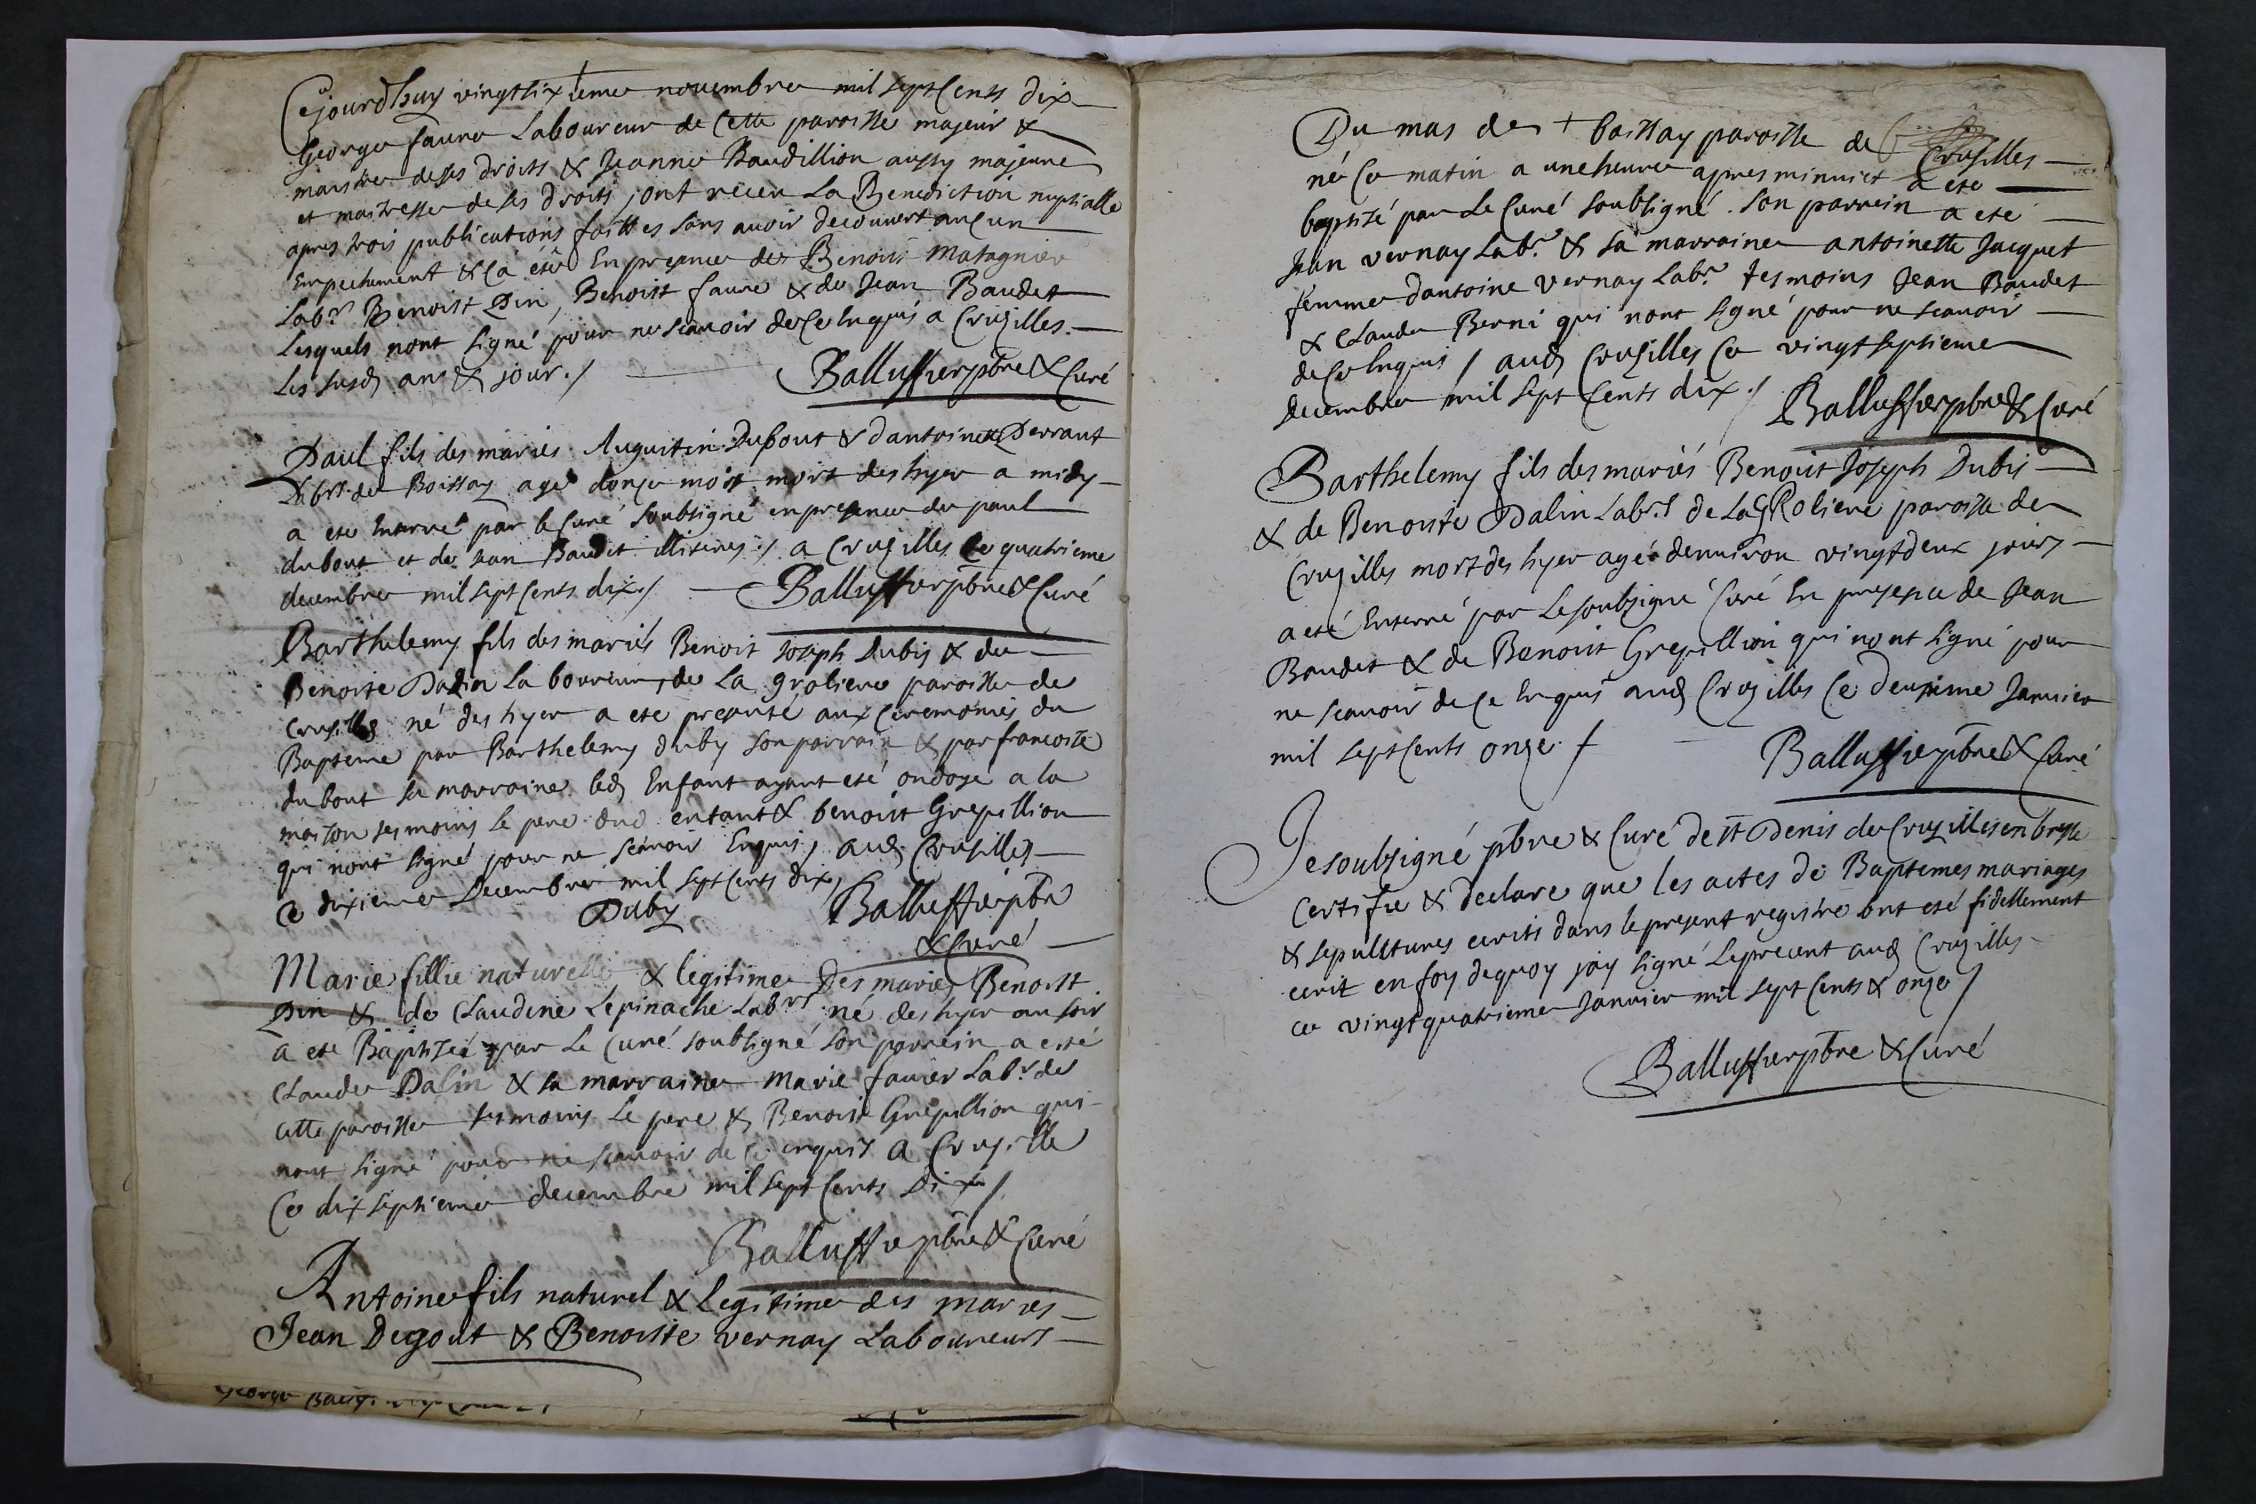 Cejourdhuy vingtsixieme novembre mil sept Cents dix
George faure Laboureur de Cette paroisse majeur &
maistre de ses droits & Jeanne Baudillion aussy majeure
et maitresse de ses droits, ont receu La Benediction nuptialle
apres trois publications faittes sans avoir decouvert aucun
Empechement & Ca éte En presence de Benoist Matagnier
Labr. Benoist Din, Benoist faure & de Jean Baudet
Lesquels nont signé pour ne scavoir de Ce Enquis a Cruzilles.
les susd. an & jour./
Balluffier pbre & Curé
Paul fils des mariés Augustin Dubout & dantoinette Perrant
Labrs. de Boissay agé donze mois mort des hyer a midy
a ete Enterré par le Curé soubsigné en presence de paul
dubout et de Jean Baudet illiteres ./ a Cruzilles Ce quatrieme
decembre mil sept Cents dix./
Balluffier pbre & Curé
Barthelemy fils des mariés Benoit Joseph Dubis & de
Benoite Dalin Laboureurs, de La groliere paroisse de
Crusilles né des hyer a ete presenté aux Ceremonies du
Bapteme par Barthelemy duby son parrain & par francoise
dubout sa marraine led. Enfant ayant eté ondoyé a la
maison tesmoins le pere dud. enfant & benoist Grepillion
qui nont signé pour ne scavoir Enquis, aud. Crusilles
Ce dixieme Decembre mil sept Cents dix,
Duby Balluffier pbre
& Curé
Marie fillie naturelle & legitime Des mariés Benoist
Din & de Claudine Lepinache Labrs. né des hyer au soir
a ete Baptisée par Le Curé soubsigné son parrein a esté
Claude Dalin & sa marraine Marie faurer Labr. de
cette paroisse tesmoins Le pere & Benoist Grepillion qui
nont signé pour ne scavoir de Ce enquis a Crusille
Ce dix septieme decembre mil sept Cents Dix /
Balluffier pbre & Curé
Antoine fils naturel & legitime des mariés
Jean Degout & Benoiste vernay Laboureurs
George
Du mas de + boissay paroisse de Crusilles
né Ce matin a une heure apres minuict a ete
baptisé par Le Curé soubsigné. son parrein a eté
Jean vernay Labr. & sa marraine antoinette Jacquet
femme dantoine vernay Labr. tesmoins Jean Baudet
& Claude Berni qui nont signé pour ne scavoir
de Ce Enquis / aud. Crusilles Ce vingtseptieme
decembre mil sept Cents dix ./
Balluffier pbre & Curé
Barthelemy fils des mariés Benoist Joseph Dubis
& de Benoiste Dalin Labrs. de La GRoliere paroisse de
Cruzilles mort des hyer agé denuiron vingtdeux jours
a eté Enterré par Le soubsigné Curé En presence de Jean
Baudet & de Benoist Grepillion qui nont signé pour
ne scavoir de Ce Enquis aud. Cruzilles Ce deuxieme Janvier
mil sept Cents onze. /
Balluffier pbre & Curé
Je soubsigné pbre & Curé de St Denis de Cruzilles en bresse
Certifie & declare que les actes de Baptemes mariages
& sepultures ecrits dans le present registre ont eté fidellement
ecrit en foy dequoy jay signé Le precent aud. Cruzilles
ce vingtquatrieme Janvier mil sept Cents & onze /
Balluffier pbre & Curé